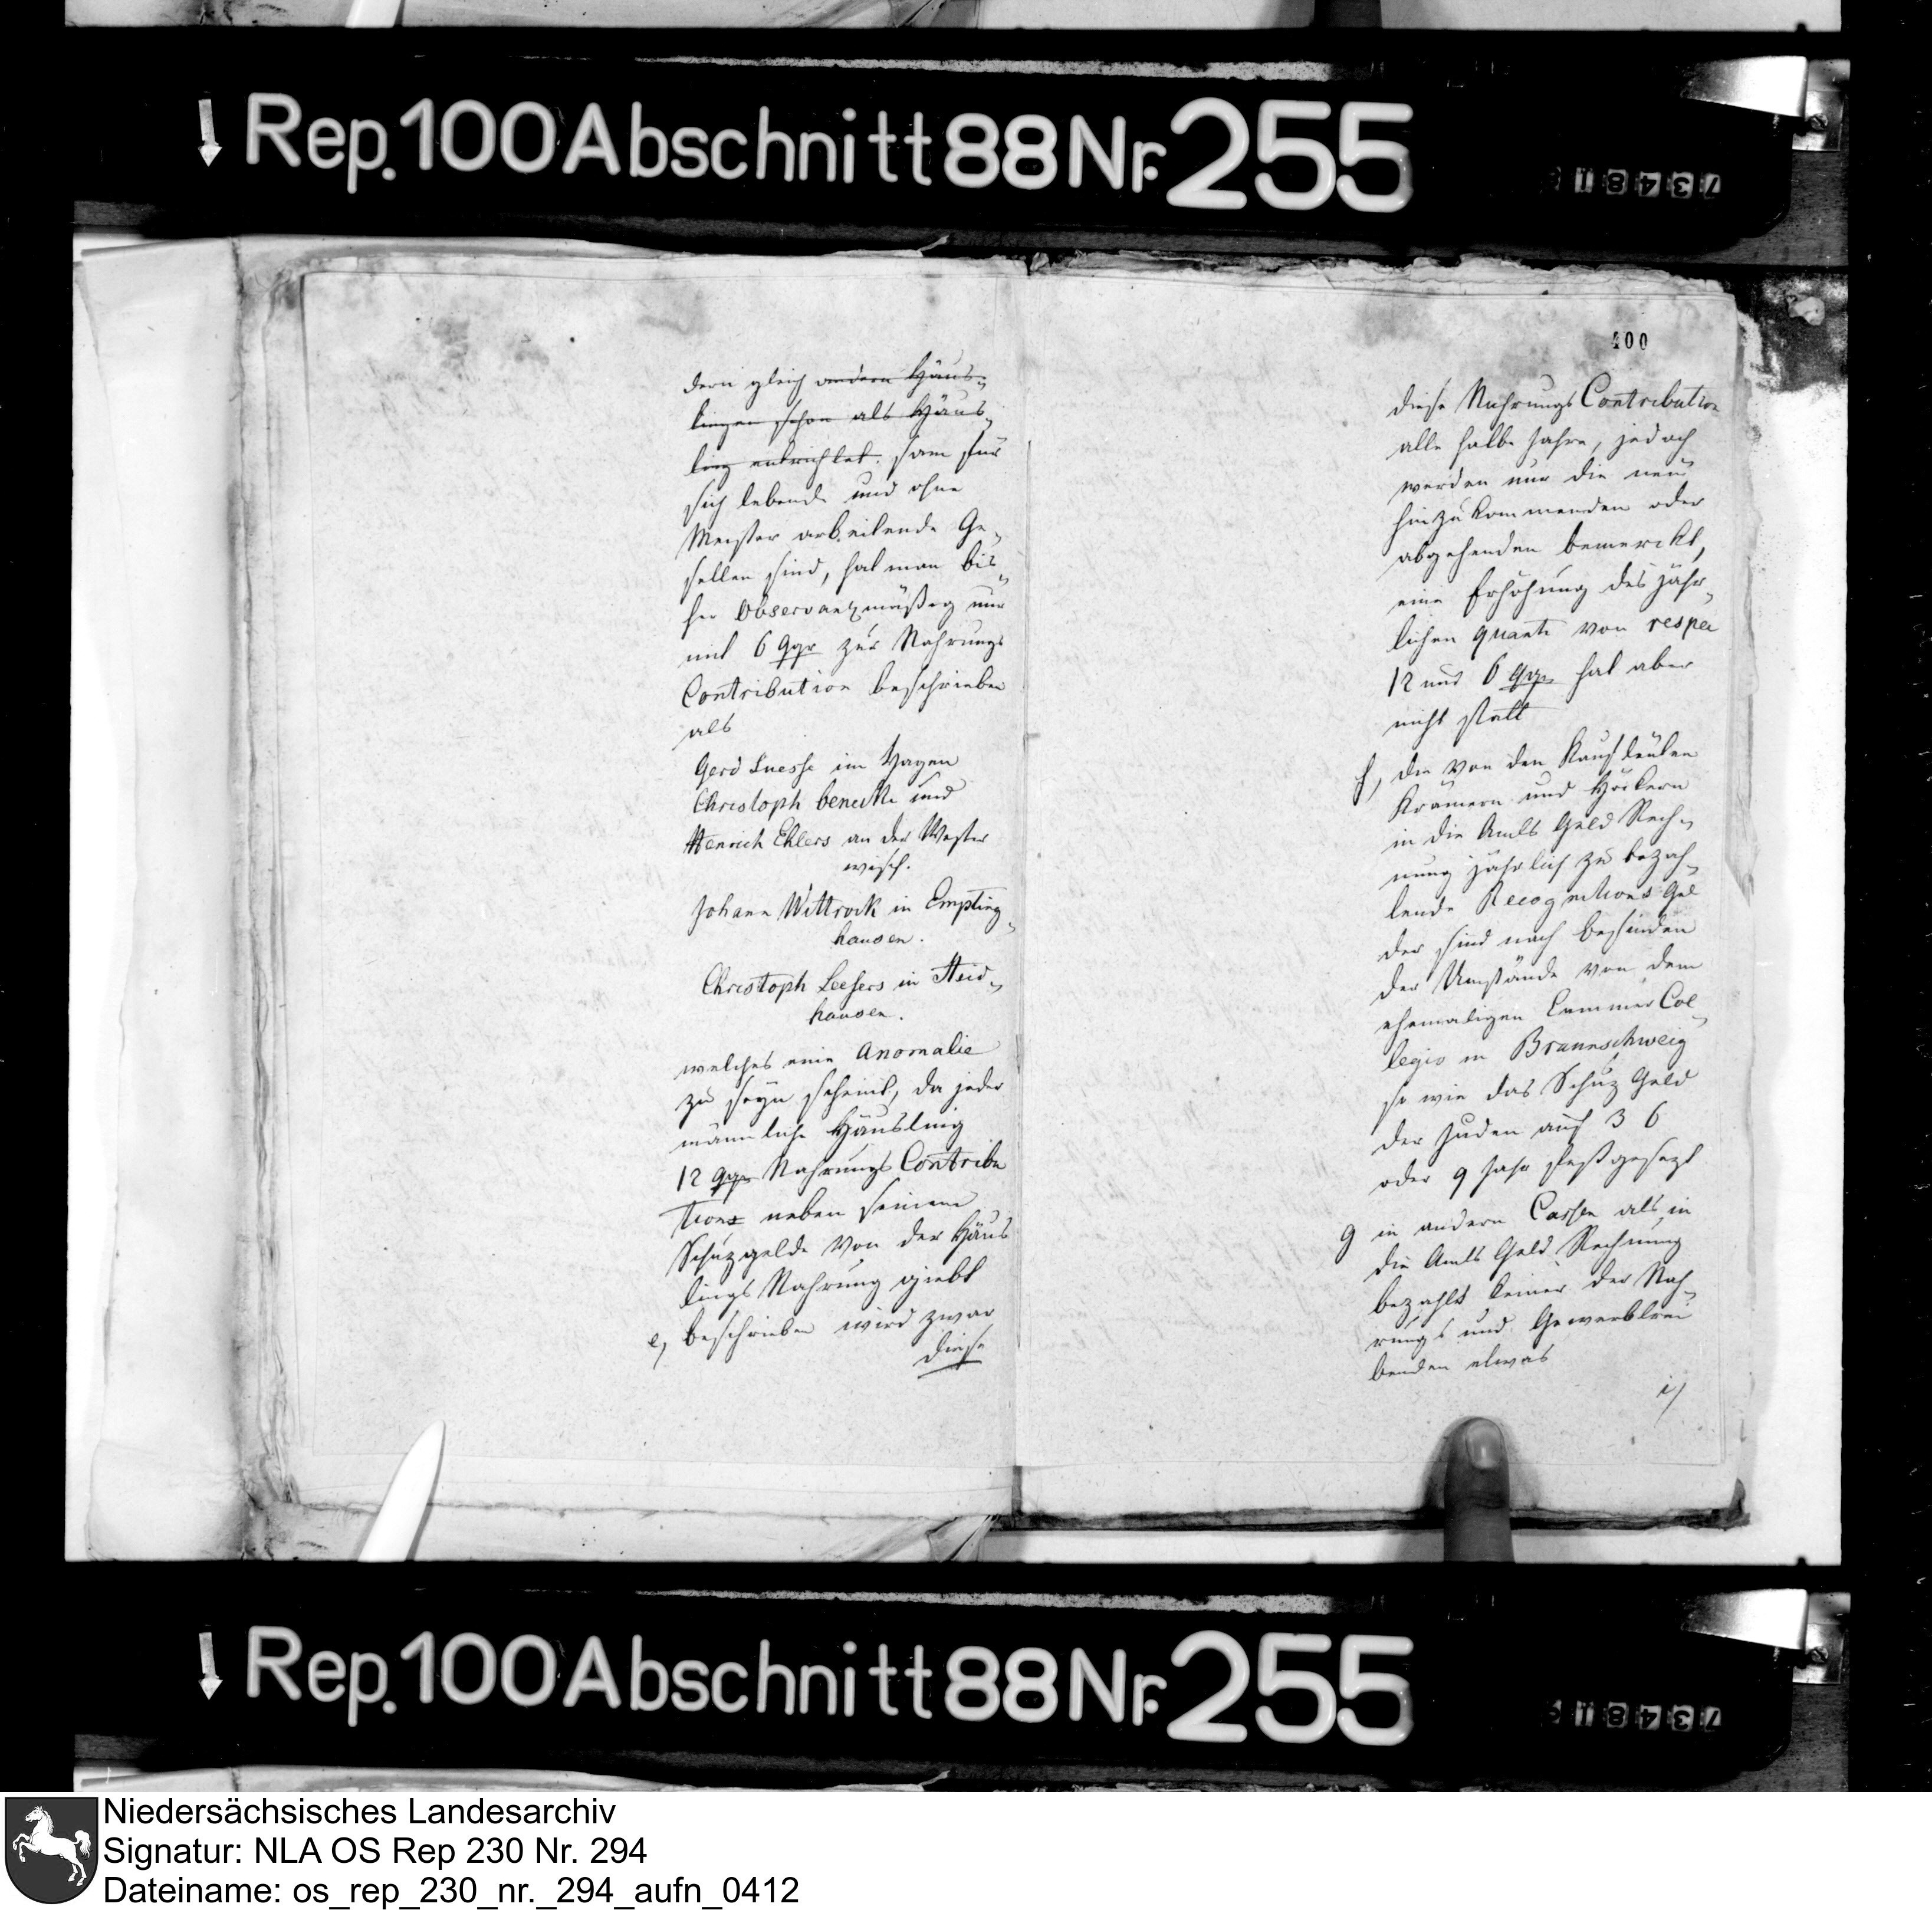 ↓ Rep. 100 Abschnitt 88 Nr. 255
73481
dern gleich andern Häus-
lingen schon als Häus-
ling entrichtet. sam für
sich lebende und ohne
Meister arbeitende Ge-
sellen sind, hat man bis-
her observanzmäßig nur
mit 6 ggr zur Nahrungs
Contribution beschrieben
als
Gerd Luesse im Hagen
Christoph benecke und
Henrich Ehlers an der Wester
wisch.
Johann Wittrock in Empting-
hausen.
Christoph Leefers in Heid-
hausen.
welches eine Anomalie
zu seyn scheint, da jeder
männliche Häusling
12 ggr Nahrungs Contribu
tions neben seinem
Schuzgelde von der Häus
lings Nahrung giebt
e, beschrieben wird zwar
diese
400
diese Nahrungs Contribution
alle halbe Jahre, jedoch
werden nur die neu
hinzukommenden oder
abgehenden bemerckt,
eine Erhöhung des jähr-
lichen quanti von respec
12 und 6 ggr hat aber
nicht statt
f, die von den Kaufleuten
Krämern und Höckern
in die Amts Geld Rech-
nung jährlich zu bezah-
lende Recognitions Gel
der sind nach befinden
der Umstände von dem
ehemaligen Cammer Col-
legio in Braunschweig
so wie das Schuz Geld
der Juden auf 3 6
oder 9 Jahr festgesezt
g in andern Cassen als in
die Amts Geld Rechnung
bezahlt keiner der Nah-
rungs und Gewerbtrei
benden etwas
i)
↓ Rep. 100 Abschnitt 88 Nr. 255
73481
Niedersächsisches Landesarchiv
Signatur: NLA OS Rep 230 Nr. 294
Dateiname: os_rep_230_nr._294_aufn_0412